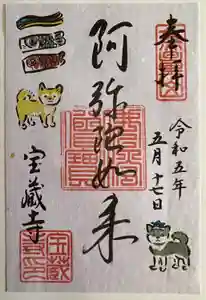 奉拝
令和五年
五月十七日
阿弥陀如来
宝蔵寺